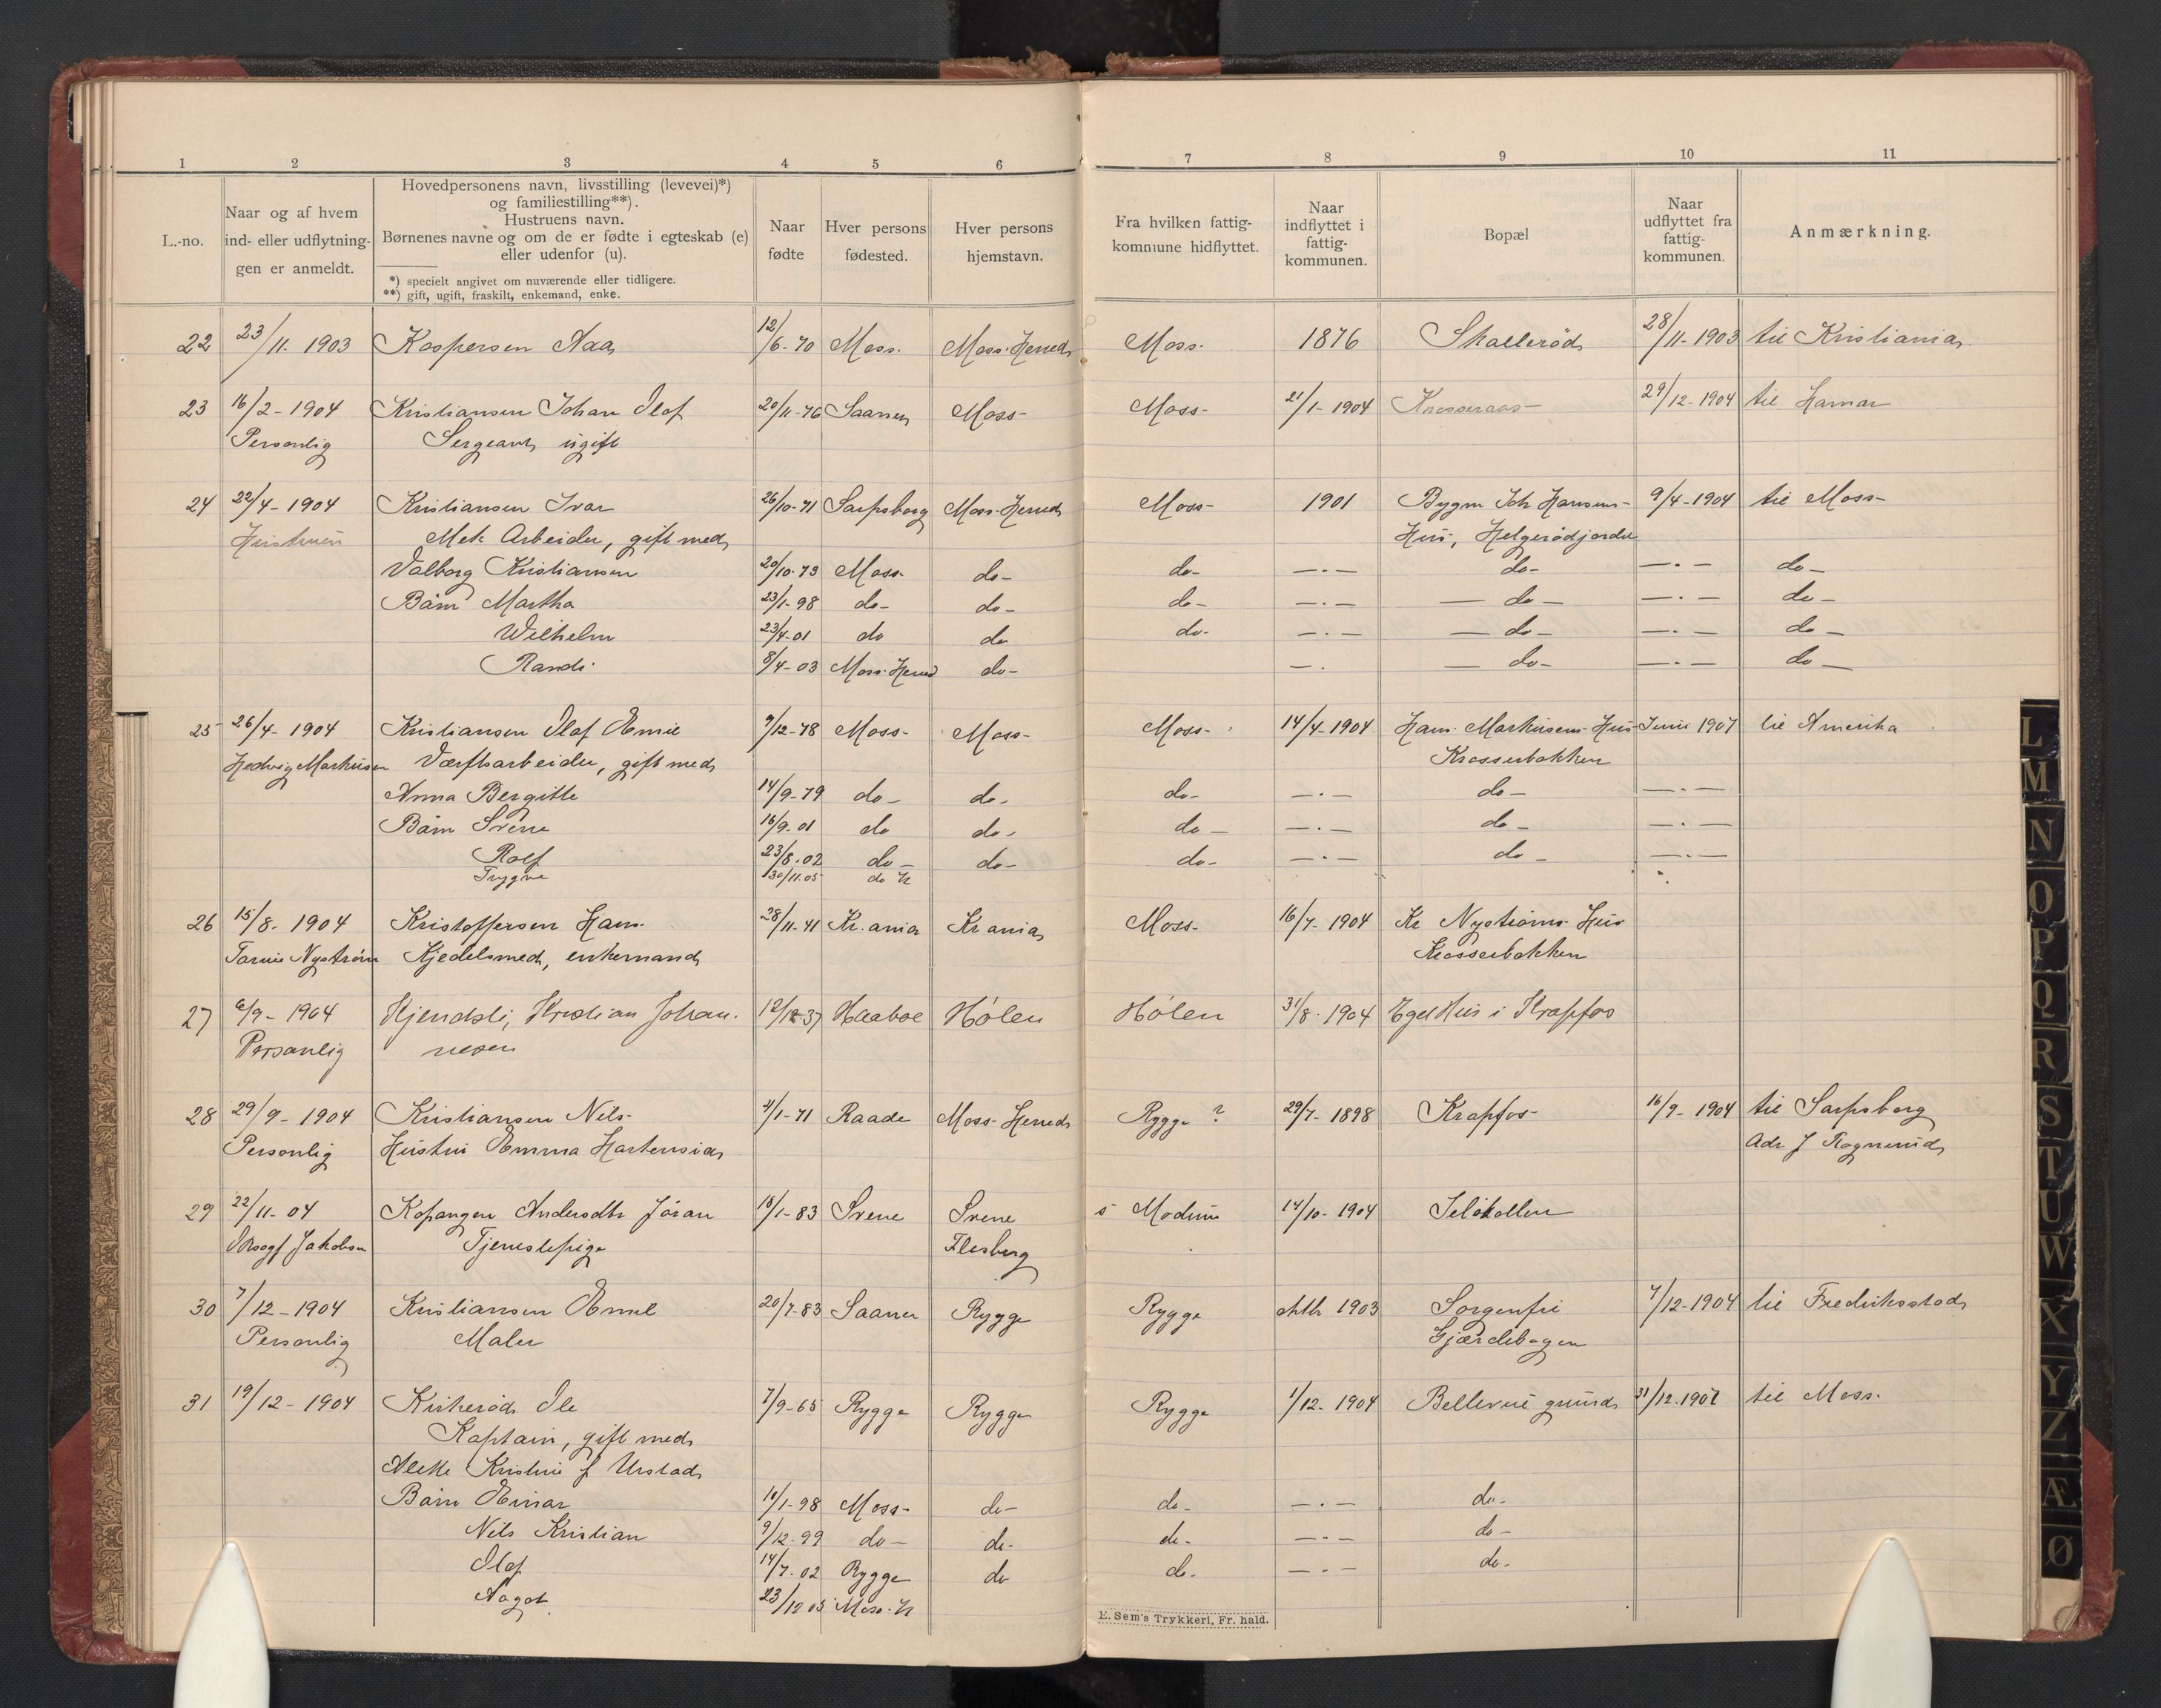 1 2 3 4 5 6 7 8 9 10 11
L.-no.
Naar og af hvem
ind- eller udflytnin-
gen er anmeldt.
Hovedpersonens navn, livsstilling (levevei)*)
og familiestilling**).
Hustruens navn.
Børnenes navne og om de er fødte i egteskab (e)
eller udenfor (u).
*) specielt angivet om nuværende eller tidligere.
**) gift, ugift, fraskilt, enkemand, enke.
Naar
fødte
Hver persons
fødested.
Hver persons
hjemstavn.
Fra hvilken fattig-
kommune hidflyttet.
Naar
indflyttet i
fattig-
kommunen.
Bopæl
Naar
udflyttet fra
fattig-
kommunen.
Anmærkning.
22 23/11-1903 Kaspersen Aas 12/6-70 Moss. Moss-Herred Moss. 1876 Skallerød 28/11-1903 til Kristiania
23 16/2-1904 Kristiansen Johan Olaf 20/11-76 Saaner Moss- Moss- 21/1-1904 29/12-1904 til Hamar
Personlig Sergeant ugift
24 22/4-1904 Kristiansen Ivar 26/10-71 Sarpsborg Moss-Herred Moss- 1901 Bygm Joh Hansens- 9/4-1904 til Moss-
Hustruen Mek Arbeider, gift med Hus, Helgerødjordet
Valborg Kristiansen 20/10-73 Moss- do- do- —.— do- —.— do-
Barn Martha 23/1-98 do- do- do- —.— — do — —.— do-
Wilhelm 23/4-01 do do do- —.— — do- —.— do-
Randi 8/4-03 Moss-Herred do- —. — do- —.— do-
25 26/4-1904 Kristiansen Olaf Emil 9/12-78 Moss- Moss- Moss- 14/4-1904 Hans Markusens Hus Juni 1907 til Amerika
Hedvig Markusen Værftsarbeider, gift med Krosserbakken
Anna Bergitte 14/9-79 do- do- do- —.— do- —.—
Barn Sverre 16/9-01 do do- do- —.— do- —.—
Rolf 23/8-02 do- do- do- —.— do- —.—
Trygve 30/11.05 do H
26 15/8-1904 Kristoffersen Hans 28/11-41 Kr.ania Kr ania Moss- 16/7-1904 Kr Nystrøms Hus
Nystrøm Kjedelsmed, enkemand Krosserbakken
27 6/9-1904 Hjendsli, Kristian Johan- 12/12-37 Haabøl Hölen Hölen 31/8-1904 Eget Hus i Krapfos
Personlig nesen
28 29/9-1904 Kristiansen Nils- 4/1-71 Raade Moss-Herred Rygge? 29/7-1898 Krapfos- 16/9-1904 til Sarpsborg
Personlig Hustru Emma Hartensia Adr J Rognerud
29 22/11-04 Kopangen Andersdtr Jöran 18/1-83 Svene Svene s Modum 14/10-1904 Jeløkollen
Jakobsen Tjenestepige Flesberg
30 7/12-1904 Kristiansen Emil 20/7-83 Saaner Rygge Rygge oktbr 1903 Sorgenfri 7/12-1904 til Fredriksstad
Personlig Maler Gjærdebogen
31 19/12-1904 Kirkerød Ole 7/9-65 Rygge Rygge Rygge 1/12-1904 Bellevue grund 31/12.1907 til Moss-
Kaptain, gift med
Alette Kristine f Urstad
Barn Einar 16/1-98 Moss- do- do- —.— do-
Nils Kristian 9/12-99 do- do- do- —.— do-
Olaf 14/7-02 Rygge do do- —.— do-
Aagot 23/12 05 Moss-H
E. Sem's Trykkeri, Fr. hald.
L
M
N
O
P
Q
R
S
T
U
W
X
Y
Z
Æ
Ø